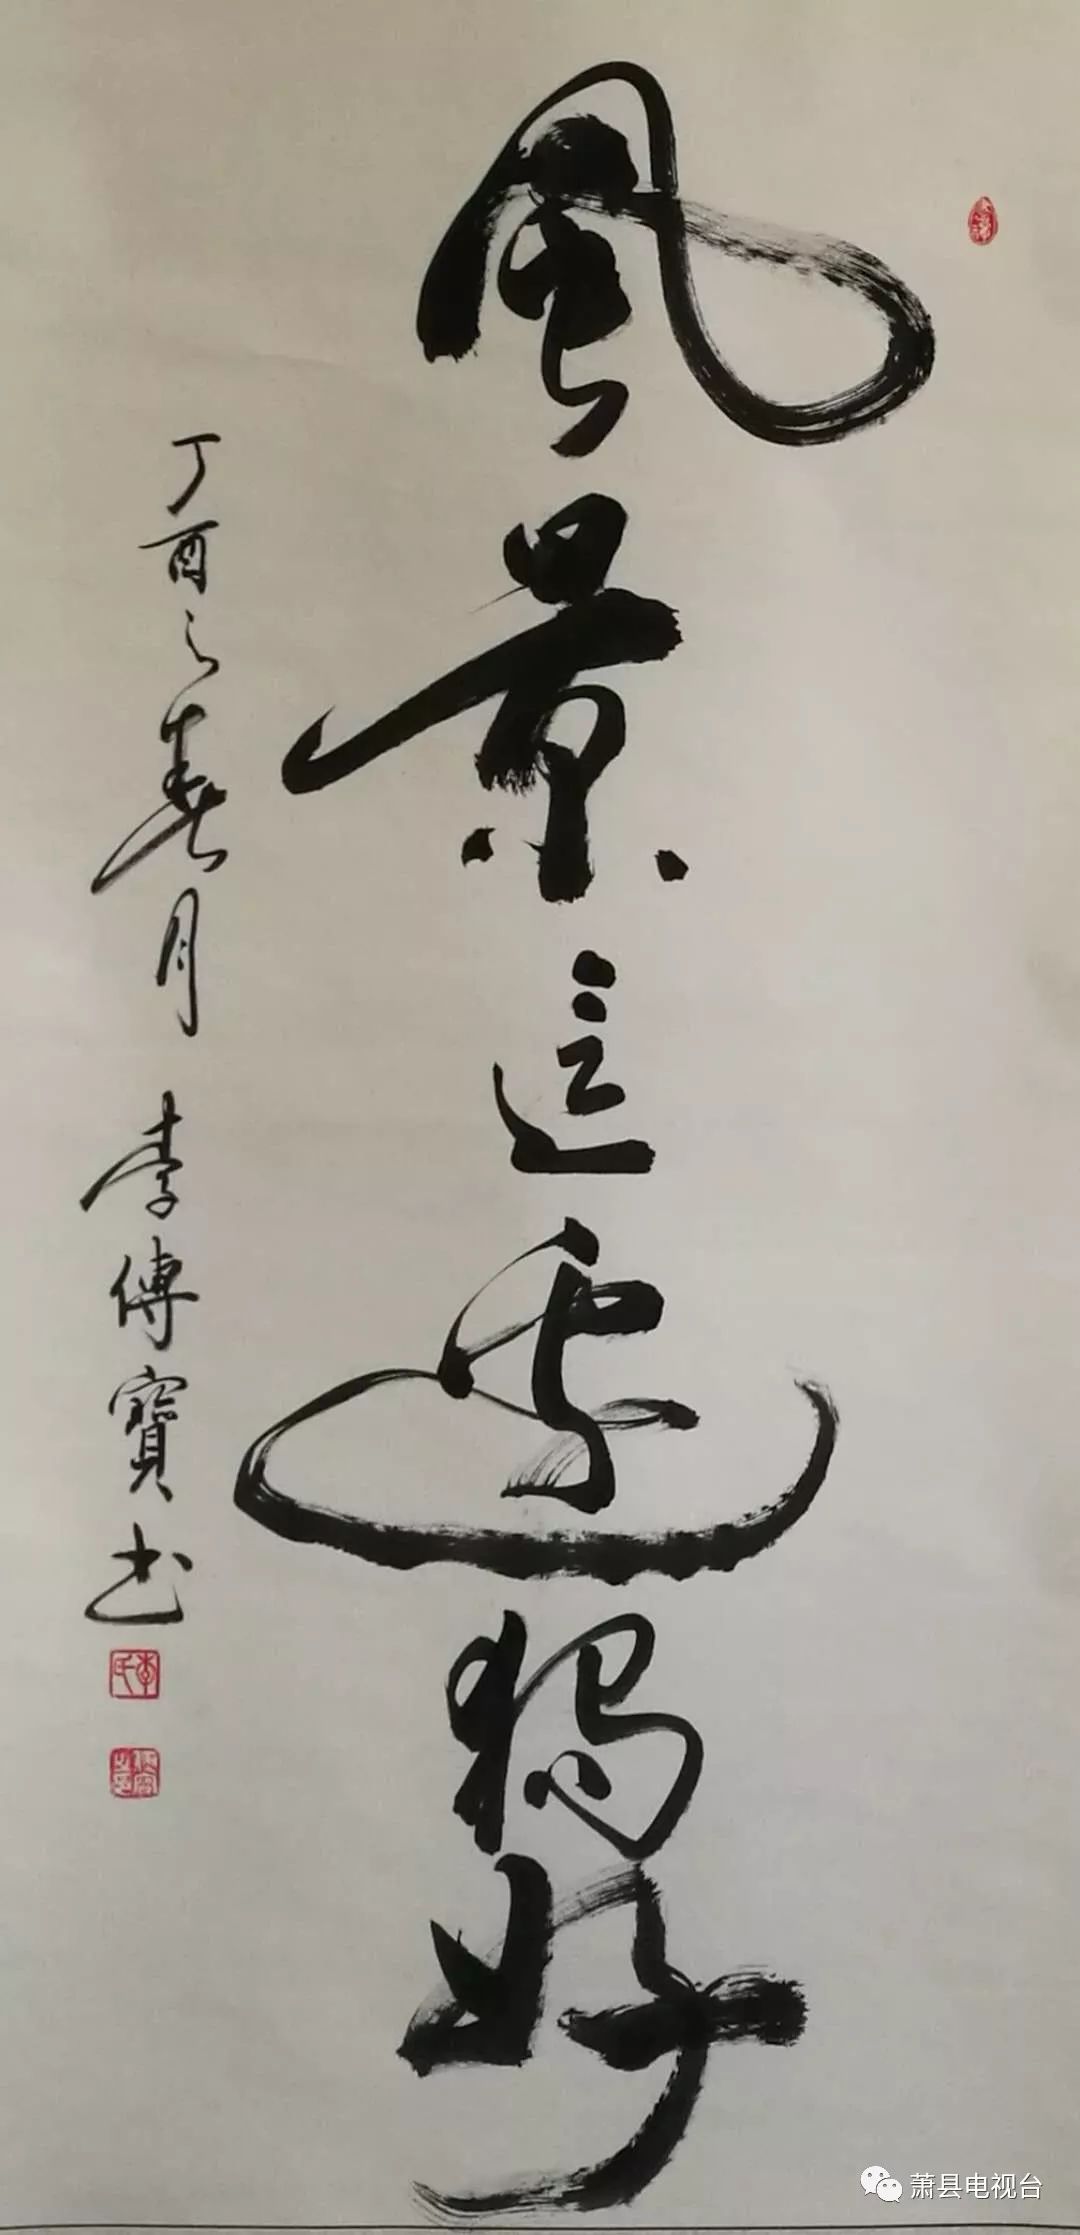 風景這边獨好
丁酉之春月 李傳寶书
李氏
萧县电视台